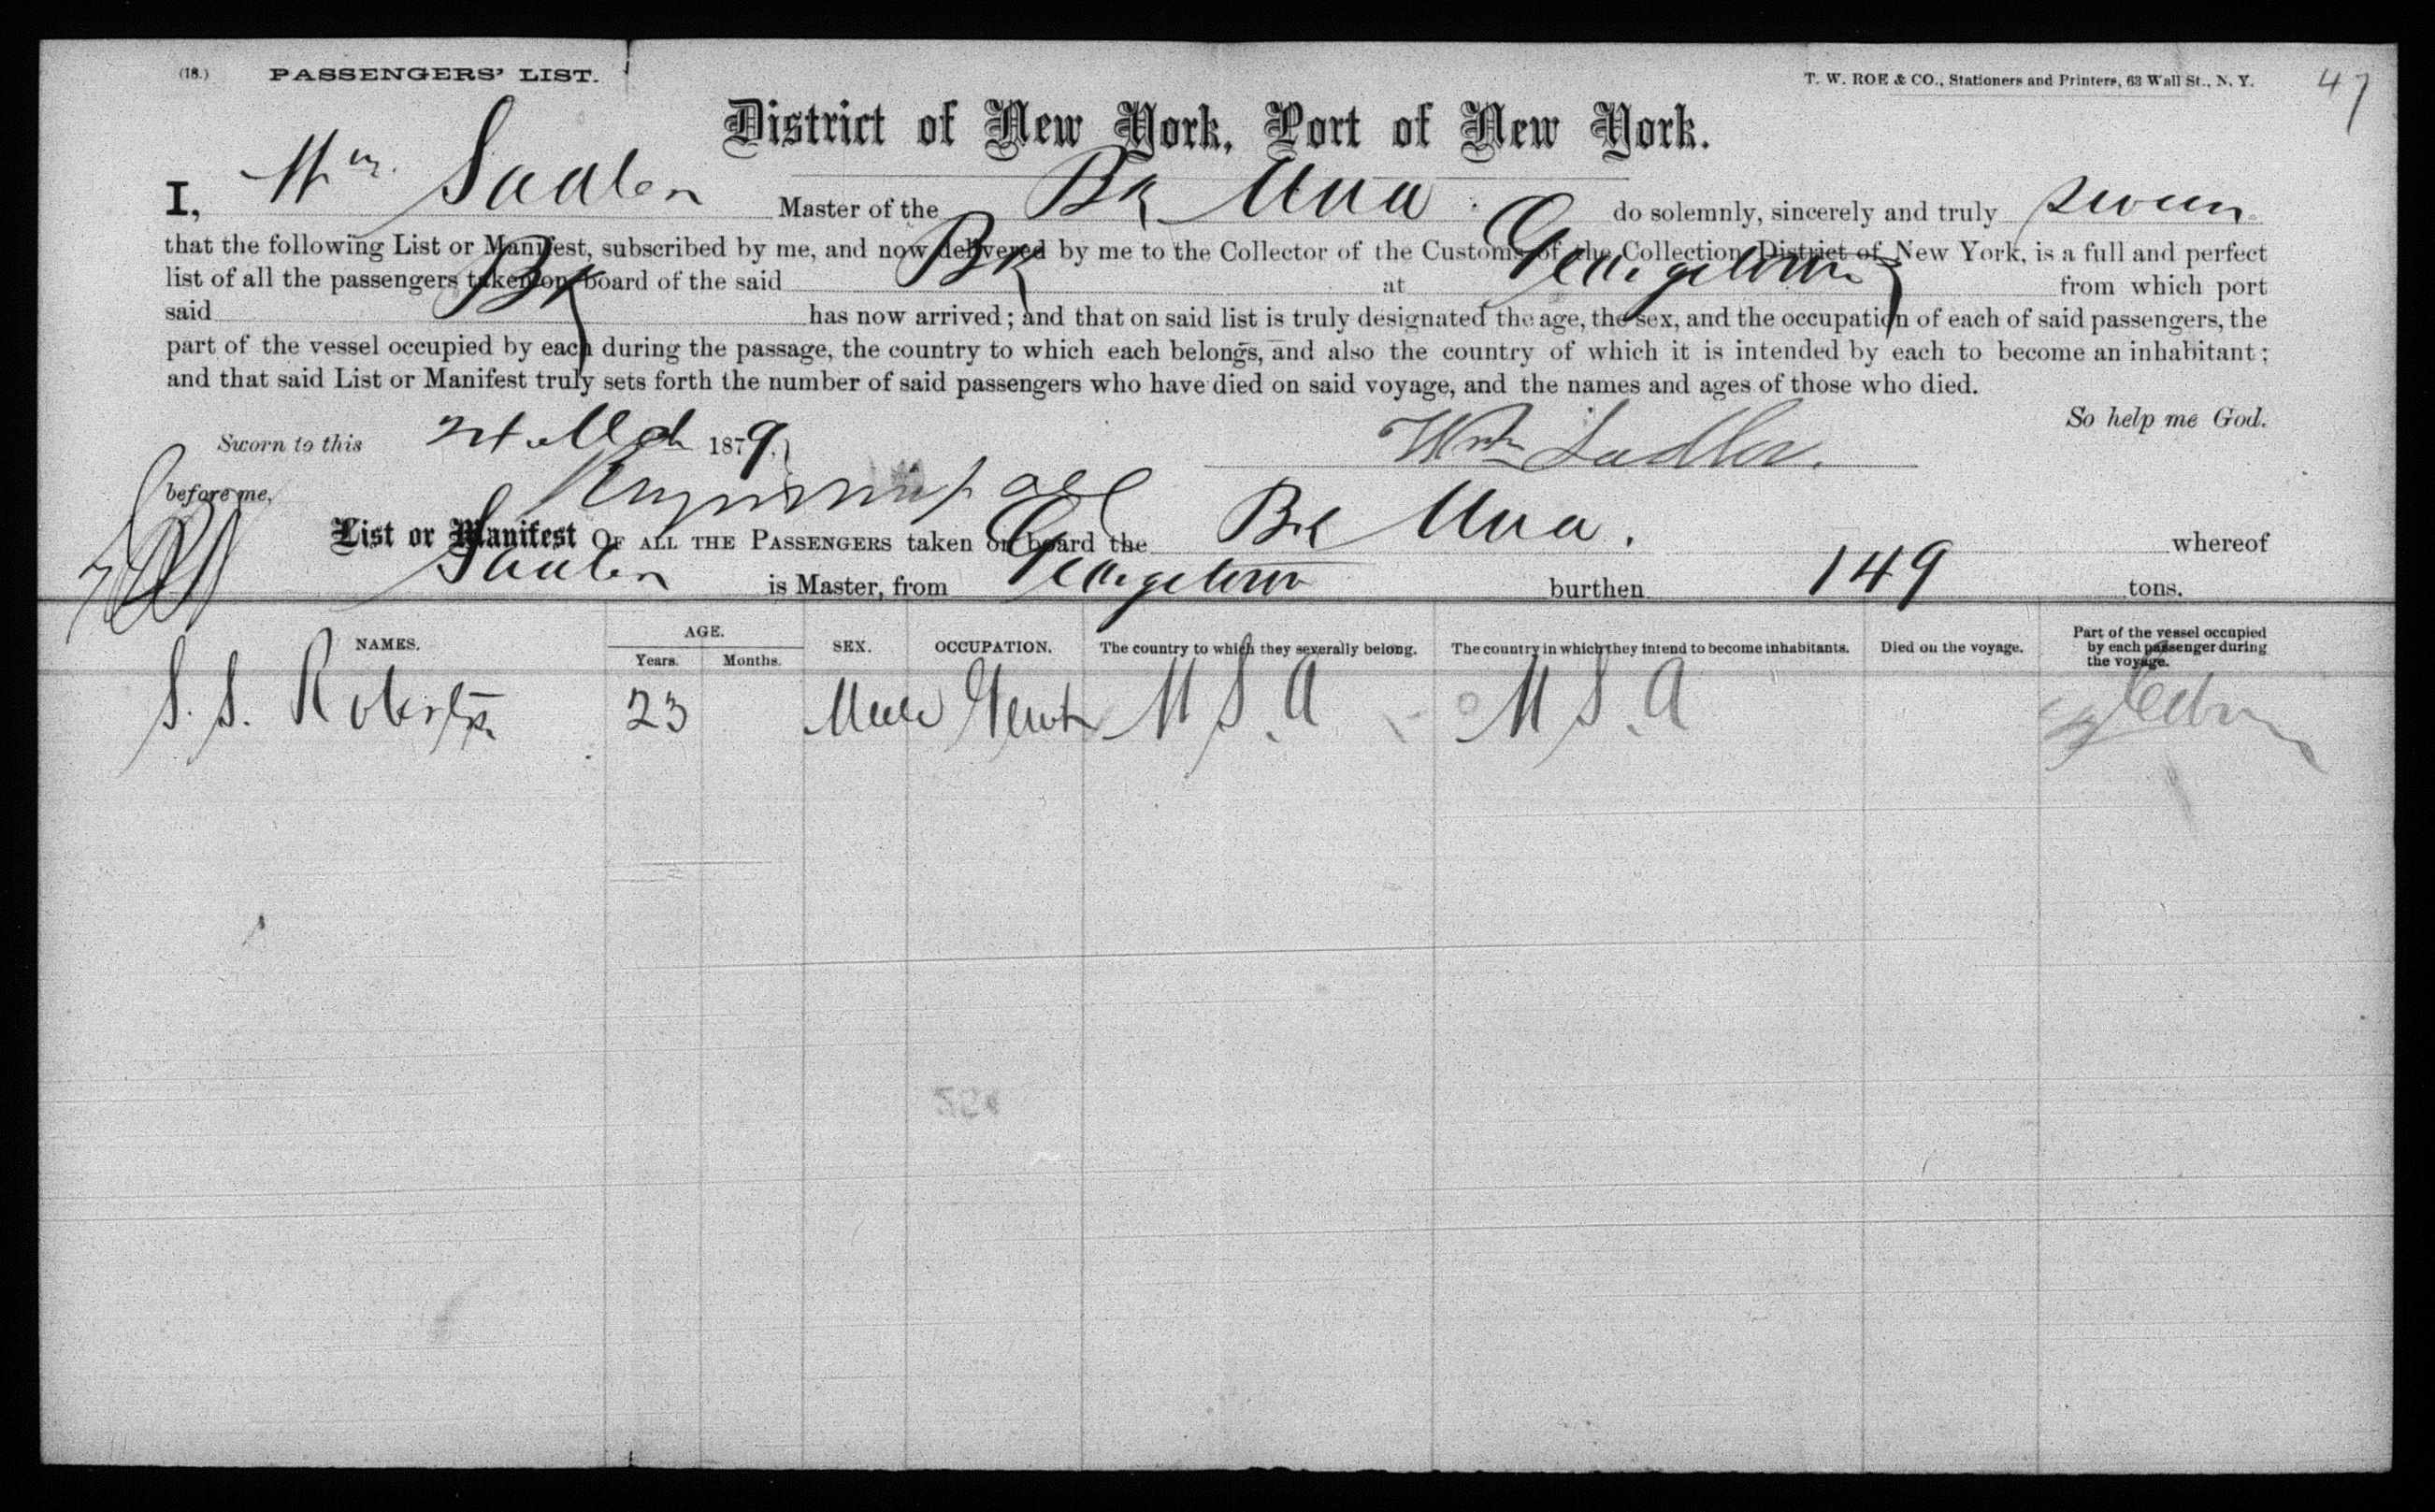 (18.) PASSENGERS' LIST. T. W. ROE & CO., Stationers and Printers, 63 Wall St., N. Y. 47
District of New York, Port of New York.
I, Wm. Sadler Master of the Bk Una do solemnly, sincerely and truly swear
that the following List or Manifest, subscribed by me, and now delivered by me to the Collector of the Customs of the Collection District of New York, is a full and perfect
list of all the passengers taken on board of the said Bk at Georgetown from which port
said Bk has now arrived; and that on said list is truly designated the age, the sex, and the occupation of each of said passengers, the
part of the vessel occupied by each during the passage, the country to which each belongs, and also the country of which it is intended by each to become an inhabitant;
and that said List or Manifest truly sets forth the number of said passengers who have died on said voyage, and the names and ages of those who died.
So help me God.
Sworn to this 1879 Wm Sadler.
before me,
List or Manifest OF ALL THE PASSENGERS taken on board the Bk Una. whereof
Sadler is Master, from Georgetown burthen 149 tons.
NAMES. AGE. Years. Months. SEX. OCCUPATION. The country to which they severally belong. The country in which they intend to become inhabitants. Died on the voyage. Part of the vessel occupied by each passenger during the voyage.
S. S. Roberts 23 Male Gent U S. A U S. A Cabin